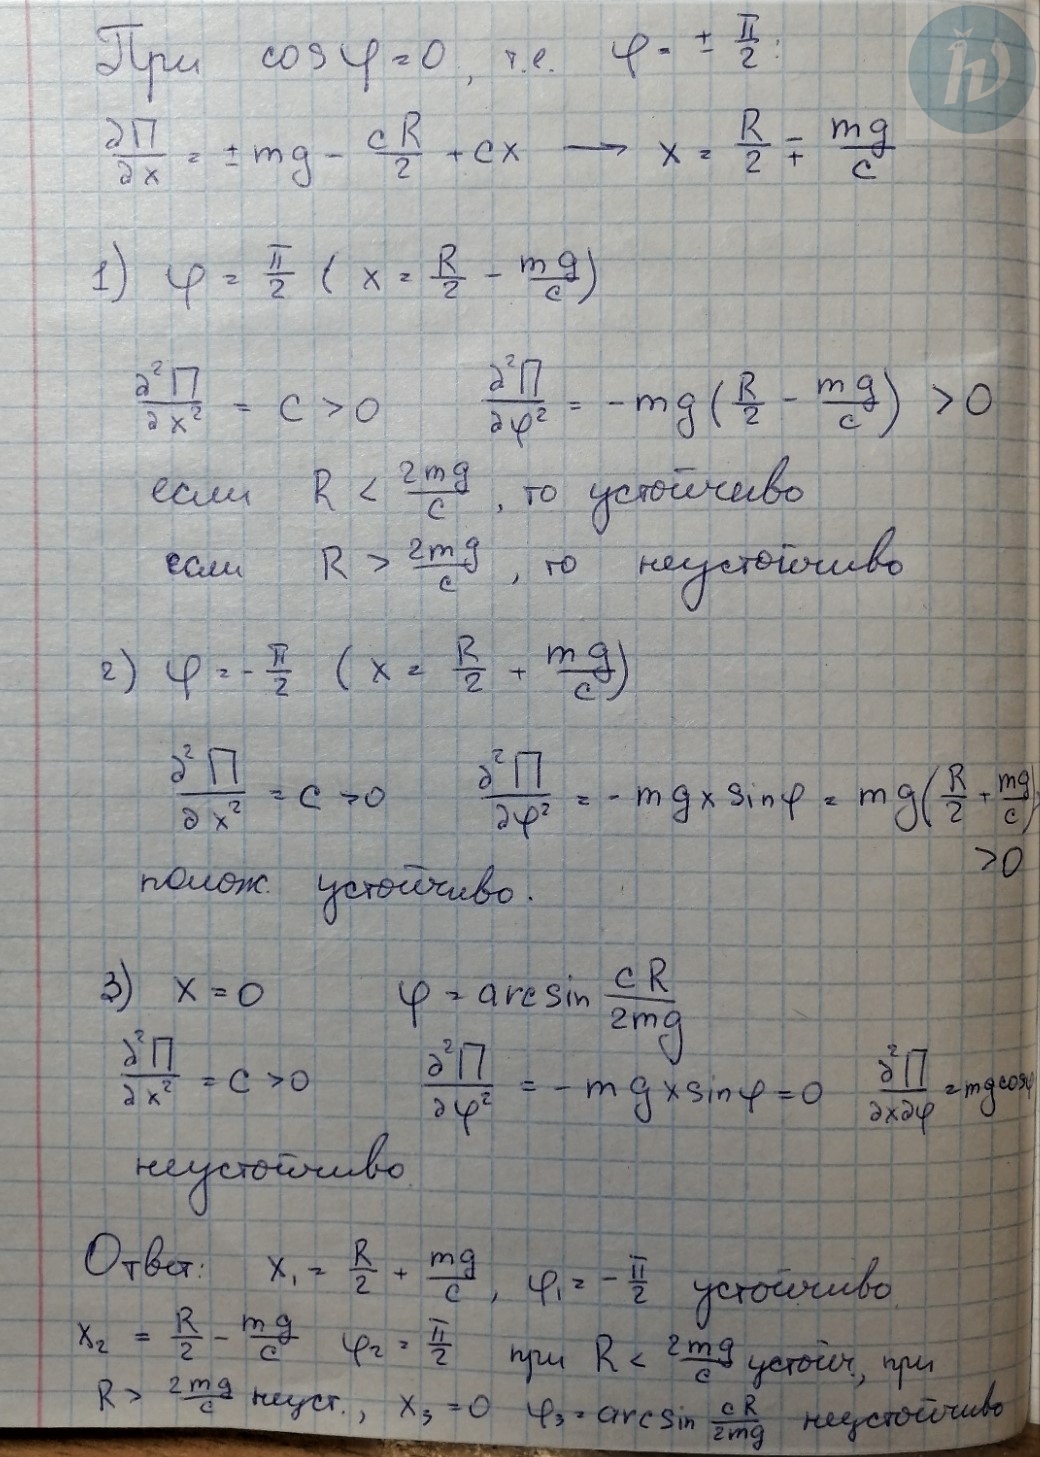 При cosφ = 0, т.е. φ = ± π/2:
∂Π/∂x = ± mg − cR/2 + cx → x = R/2 ∓ mg/c
1) φ = π/2 ( x = R/2 − mg/c )
∂²Π/∂x² = c > 0 ∂²Π/∂φ² = −mg(R/2 − mg/c) > 0
если R < 2mg/c, то устойчиво
если R > 2mg/c, то неустойчиво
2) φ = −π/2 ( x = R/2 + mg/c )
∂²Π/∂x² = c > 0 ∂²Π/∂φ² = −mgx sinφ = mg(R/2 + mg/c)
>0
полож. устойчиво.
3) x = 0 φ = arcsin cR/2mg
∂²Π/∂x² = c > 0 ∂²Π/∂φ² = −mgx sinφ = 0 ∂²Π/∂x∂φ = mg cosφ
неустойчиво
Ответ: x₁ = R/2 + mg/c, φ₁ = −π/2 устойчиво
x₂ = R/2 − mg/c φ₂ = π/2 при R < 2mg/c устойч., при
R > 2mg/c неуст., x₃ = 0 φ₃ = arcsin cR/2mg неустойчиво